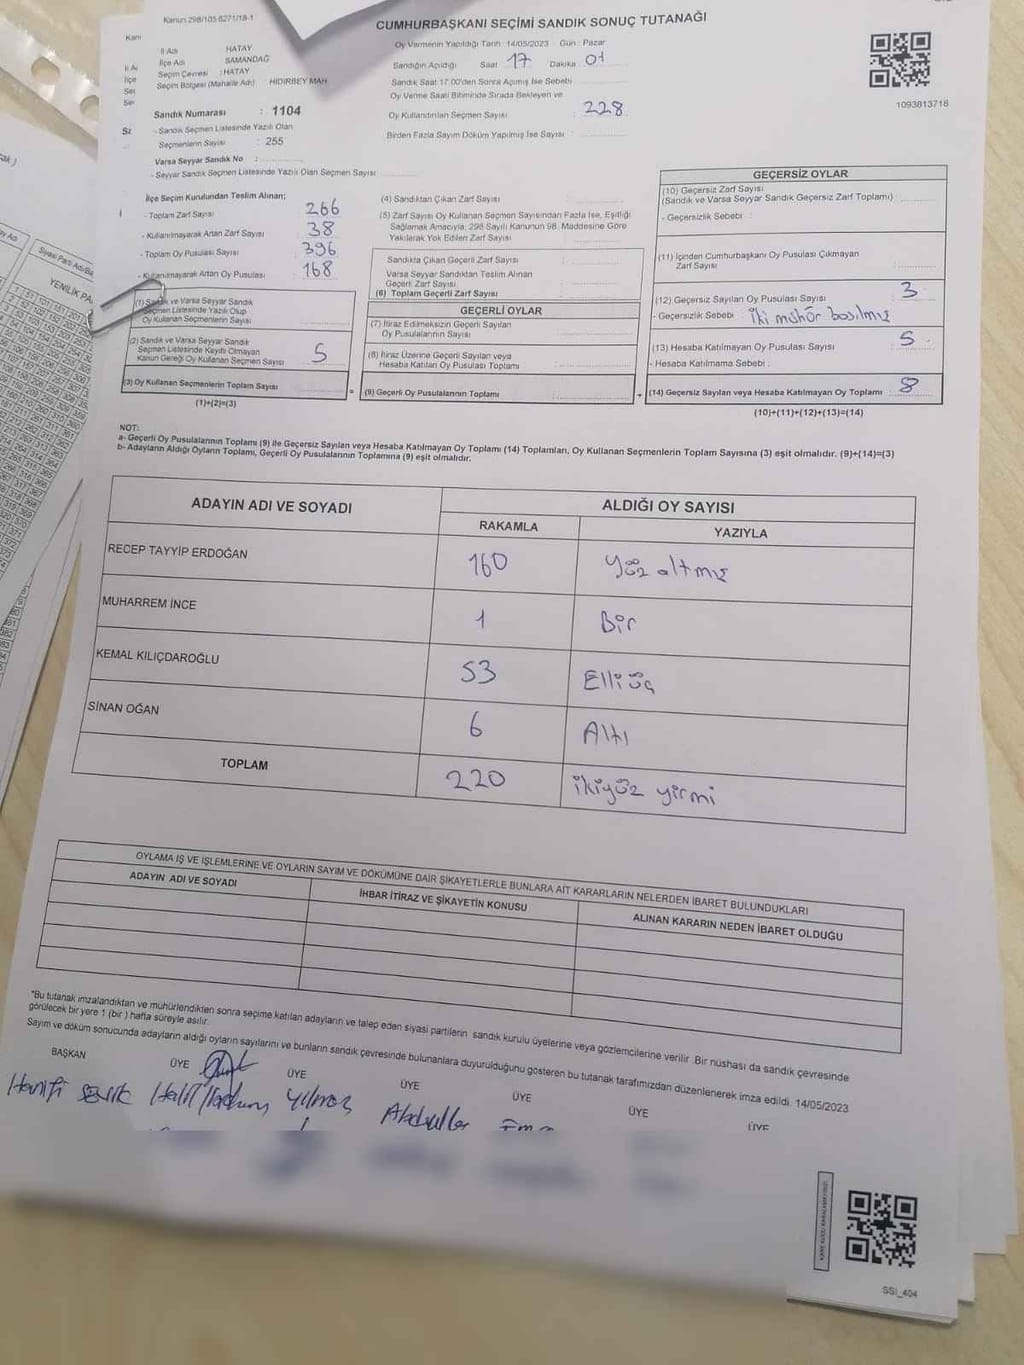 Kanun 298/105 6271/18-1
CUMHURBAŞKANI SEÇİMİ SANDIK SONUÇ TUTANAĞI
İl Adı HATAY
İlçe Adı SAMANDAĞ
Seçim Çevresi : HATAY
Seçim Bölgesi (Mahalle Adı) HIDIRBEY MAH.
Sandık Numarası : 1104
- Sandık Seçmen Listesinde Yazılı Olan
Seçmenlerin Sayısı : 255
Varsa Seyyar Sandık No :
- Seyyar Sandık Seçmen Listesinde Yazılı Olan Seçmen Sayısı
Oy Vermenin Yapıldığı Tarih 14/05/2023 Gün : Pazar
Sandığın Açıldığı Saat 17 Dakika 01
Sandık Saat 17.00'den Sonra Açılmış İse Sebebi
Oy Verme Saati Bitiminde Sırada Bekleyen ve
Oy Kullandırılan Seçmen Sayısı : 228
Birden Fazla Sayım Döküm Yapılmış İse Sayısı :
1093813718
İlçe Seçim Kurulundan Teslim Alınan;
- Toplam Zarf Sayısı 266
- Kullanılmayarak Artan Zarf Sayısı 38
- Toplam Oy Pusulası Sayısı 396
- Kullanılmayarak Artan Oy Pusulası 168
(1) Sandık ve Varsa Seyyar Sandık
Seçmen Listesinde Yazılı Olup
Oy Kullanan Seçmenlerin Sayısı
(2) Sandık ve Varsa Seyyar Sandık
Seçmen Listesinde Kayıtlı Olmayan
Kanun Gereği Oy Kullanan Seçmen Sayısı 5
(3) Oy Kullanan Seçmenlerin Toplam Sayısı
(1)+(2)=(3)
(4) Sandıktan Çıkan Zarf Sayısı
(5) Zarf Sayısı Oy Kullanan Seçmen Sayısından Fazla İse, Eşitliği
Sağlamak Amacıyla; 298 Sayılı Kanunun 98. Maddesine Göre
Yakılarak Yok Edilen Zarf Sayısı
Sandıkta Çıkan Geçerli Zarf Sayısı
Varsa Seyyar Sandıktan Teslim Alınan
Geçerli Zarf Sayısı
(6) Toplam Geçerli Zarf Sayısı
GEÇERLİ OYLAR
(7) İtiraz Edilmeksizin Geçerli Sayılan
Oy Pusulasının Sayısı
(8) İtiraz Üzerine Geçerli Sayılan veya
Hesaba Katılan Oy Pusulası Toplamı
= (9) Geçerli Oy Pusulalarının Toplamı
GEÇERSİZ OYLAR
(10) Geçersiz Zarf Sayısı
(Sandık ve Varsa Seyyar Sandık Geçersiz Zarf Toplamı)
- Geçersizlik Sebebi :
(11) İçinden Cumhurbaşkanı Oy Pusulası Çıkmayan
Zarf Sayısı
(12) Geçersiz Sayılan Oy Pusulası Sayısı 3
- Geçersizlik Sebebi : İki mühür basılmış
(13) Hesaba Katılmayan Oy Pusulası Sayısı 5
- Hesaba Katılmama Sebebi :
+ (14) Geçersiz Sayılan veya Hesaba Katılmayan Oy Toplamı 8
(10)+(11)+(12)+(13)=(14)
NOT:
a- Geçerli Oy Pusulalarının Toplamı (9) ile Geçersiz Sayılan veya Hesaba Katılmayan Oy Toplamı (14) Toplamları, Oy Kullanan Seçmenlerin Toplam Sayısına (3) eşit olmalıdır. (9)+(14)=(3)
b- Adayların Aldığı Oyların Toplamı, Geçerli Oy Pusulalarının Toplamına (9) eşit olmalıdır.
ADAYIN ADI VE SOYADI ALDIĞI OY SAYISI
RAKAMLA YAZIYLA
RECEP TAYYİP ERDOĞAN 160 Yüz altmış
MUHARREM İNCE 1 Bir
KEMAL KILIÇDAROĞLU 53 Elliüç
SİNAN OĞAN 6 Altı
TOPLAM 220 ikiyüz yirmi
OYLAMA İŞ VE İŞLEMLERİNE VE OYLARIN SAYIM VE DÖKÜMÜNE DAİR ŞİKAYETLERLE BUNLARA AİT KARARLARIN NELERDEN İBARET BULUNDUKLARI
ADAYIN ADI VE SOYADI İHBAR İTİRAZ VE ŞİKAYETİN KONUSU ALINAN KARARIN NEDEN İBARET OLDUĞU
"Bu tutanak imzalandıktan ve mühürlendikten sonra seçime katılan adayların ve talep eden siyasi partilerin sandık kurulu üyelerine veya gözlemcilerine verilir .Bir nüshası da sandık çevresinde
görülecek bir yere 1 (bir ) hafta süreyle asılır.
Sayım ve döküm sonucunda adayların aldığı oyların sayılarını ve bunların sandık çevresinde bulunanlara duyurulduğunu gösteren bu tutanak tarafımızdan düzenlenerek imza edildi. 14/05/2023
BAŞKAN ÜYE ÜYE ÜYE ÜYE ÜYE ÜYE
Yılmaz
SSI_404